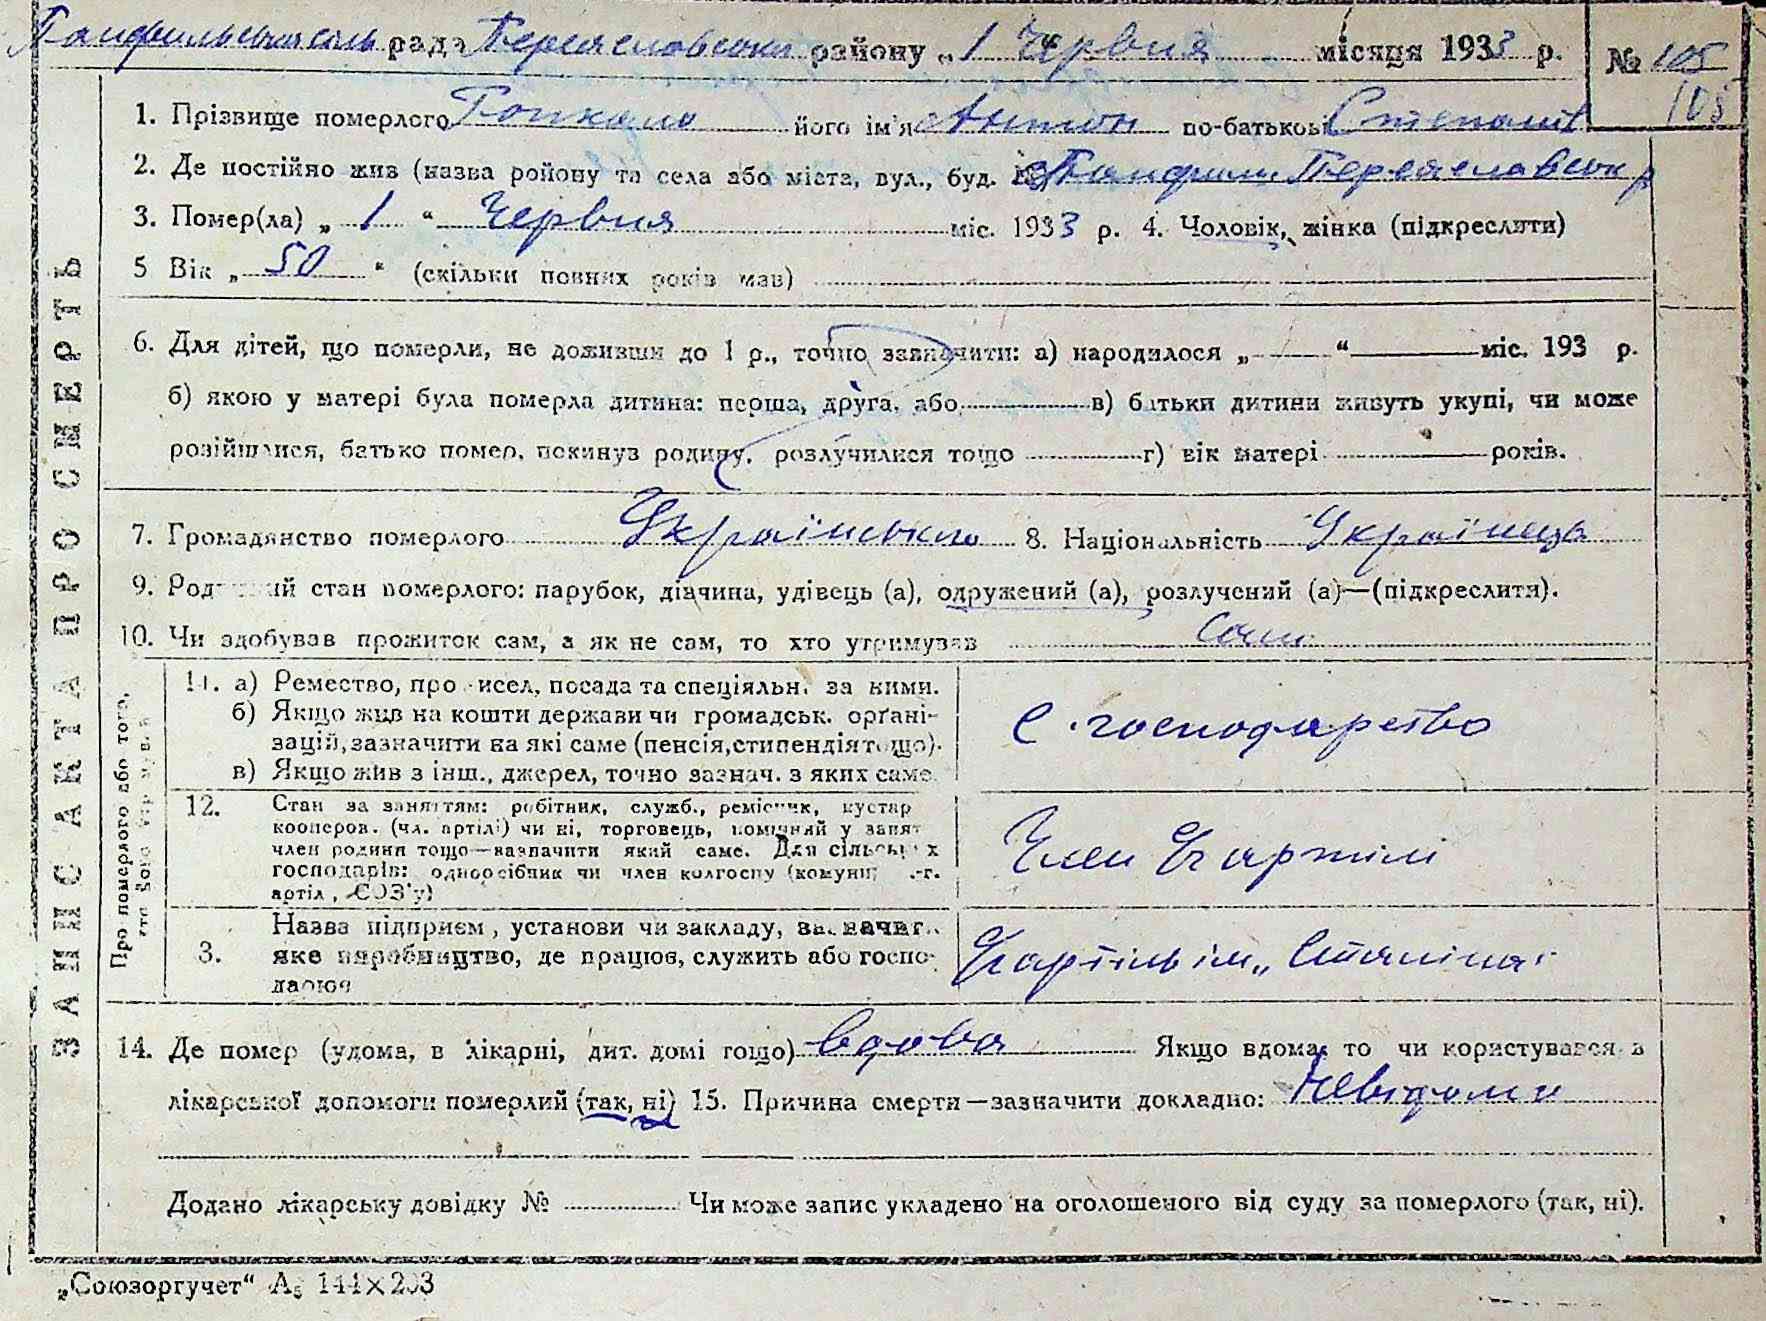 Панфильська сіль рада Переяславськ району „1 Червня місяця 1933 р. № 105
105
1. Прізвище померлого його ім'я Антон по-батькові Степанів
2. Де постійно жив (назва району та села або міста, вул., буд. с. Панфили Переяславськ р
3. Помер(ла) „ 1 “ Червня міс. 1933 р. 4. Чоловік, жінка (підкреслити)
5 Вік „ 50 “ (скільки повних років мав)
6. Для дітей, що померли, не доживши до 1 р., точно зазначити: а) народилося „ “ міс. 193 р.
б) якою у матері була померла дитина: перша, друга, або в) батьки дитини живуть укупі, чи може
розійшлися, батько помер, покинув родину, розлучилися тощо г) вік матері років.
7. Громадянство померлого Українське 8. Національність Українець
9. Родинний стан померлого: парубок, дівчина, удівець (а), одружений (а), розлучений (а)—(підкреслити).
10. Чи здобував прожиток сам, а як не сам, то хто утримував Сам
ЗАПИС АКТА ПРО СМЕРТЬ
Про померлого або того,
хто його утримував
11. а) Ремество, промисел, посада та спеціяльн. за ними.
б) Якщо жив на кошти держави чи громадськ. орґані-
зацій, зазначити на які саме (пенсія, стипендія тощо).
в) Якщо жив з інш., джерел, точно зазнач. з яких саме
С. господарство
12. Стан за заняттям: робітник, служб., ремісник, кустар
кооперов. (чл. артілі) чи ні, торговець, помічний у занят
член родини тощо—зазначити який саме. Для сільських
господарів: одноосібник чи член колгоспу (комуни, с.-г.
артіл., СОЗ'у)
Член артілі
3. Назва підприєм., установи чи закладу, зазначит.
яке виробництво, де працює, служить або госпо-
дарює
артіль ім „Сталіна“
14. Де помер (удома, в лікарні, дит. домі тощо) вдома Якщо вдома, то чи користувався в
лікарської допомоги померлий (так, ні) 15. Причина смерти—зазначити докладно: Невідома
Додано лікарську довідку № Чи може запис укладено на оголошеного від суду за померлого (так, ні).
„Союзоргучет“ А₅ 144×203